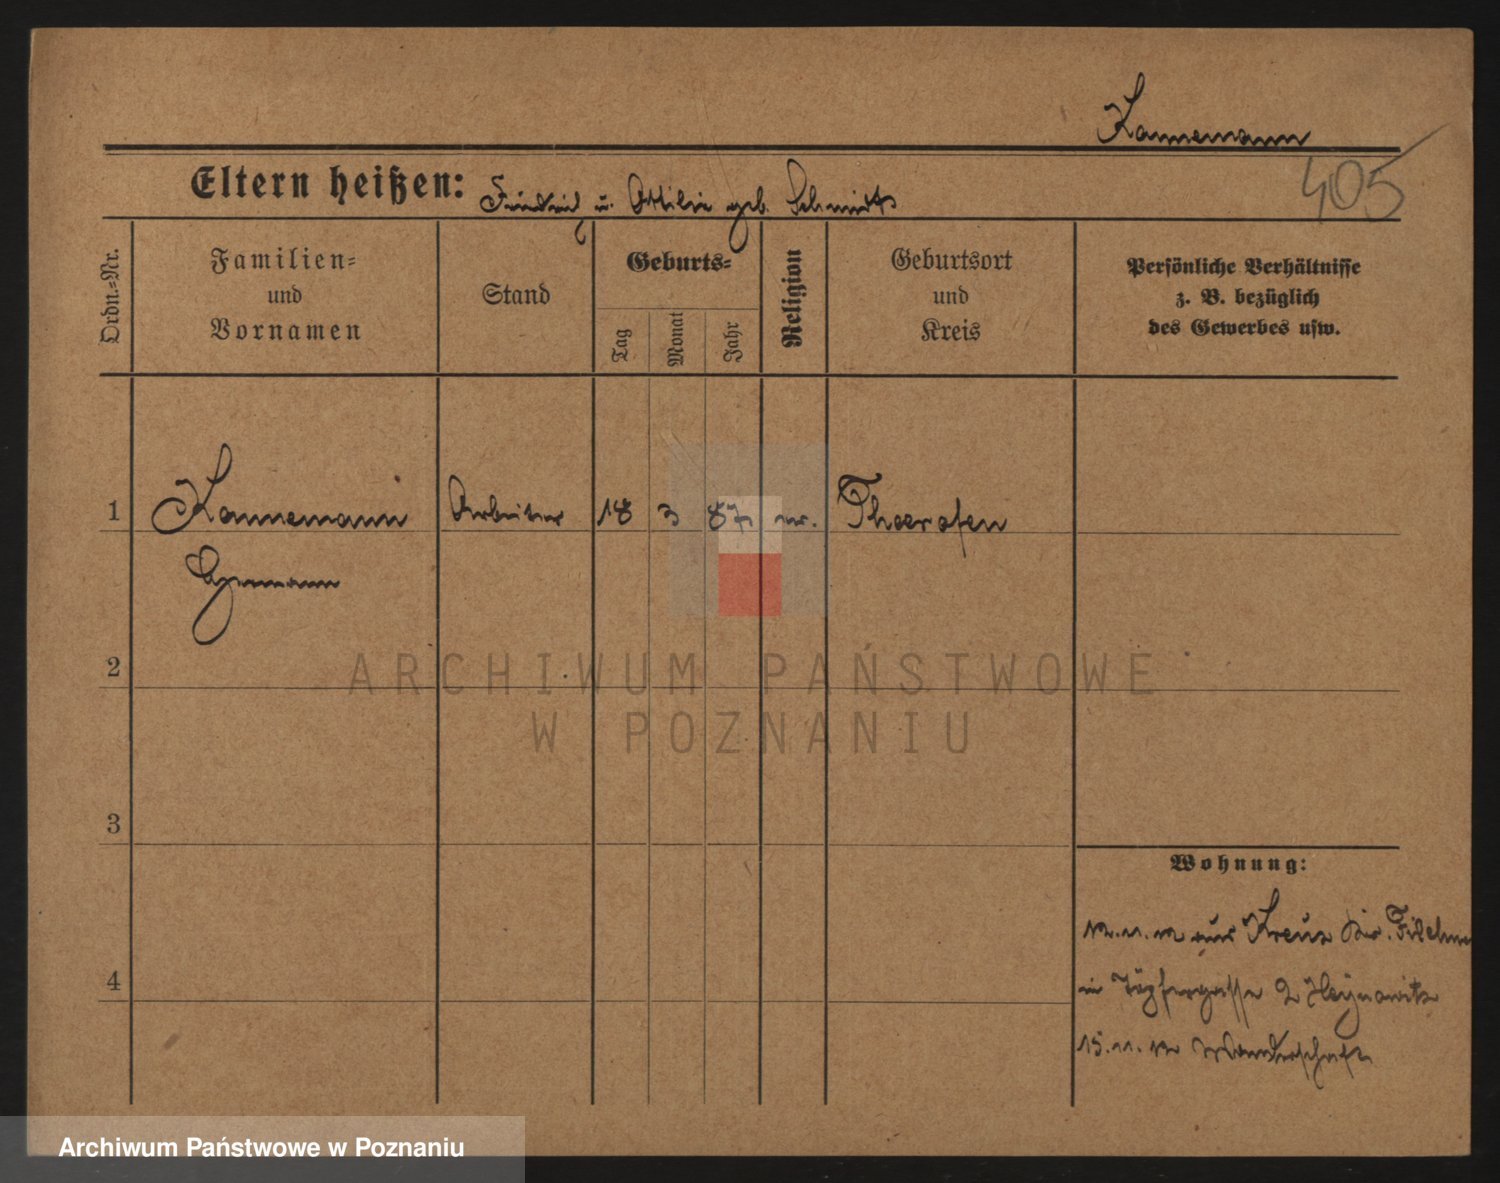 Kannemann
405
Eltern heißen: Friedrich u. Ottilie geb. Schmidt
Ordn.=Nr.
Familien=
und
Vornamen
Stand
Geburts=
Tag
Monat
Jahr
Religion
Geburtsort
und
Kreis
Persönliche Verhältnisse
z. B. bezüglich
des Gewerbes usw.
1
Kannemann
Arbeiter
18
3
87
ev.
Hermann
2
ARCHIWUM PAŃSTWOWE
W POZNANIU
3
Wohnung:
12.11.12 aus Kreuz
4
in Töpfergasse 2
15.11.12 Wanderschaft
Archiwum Państwowe w Poznaniu